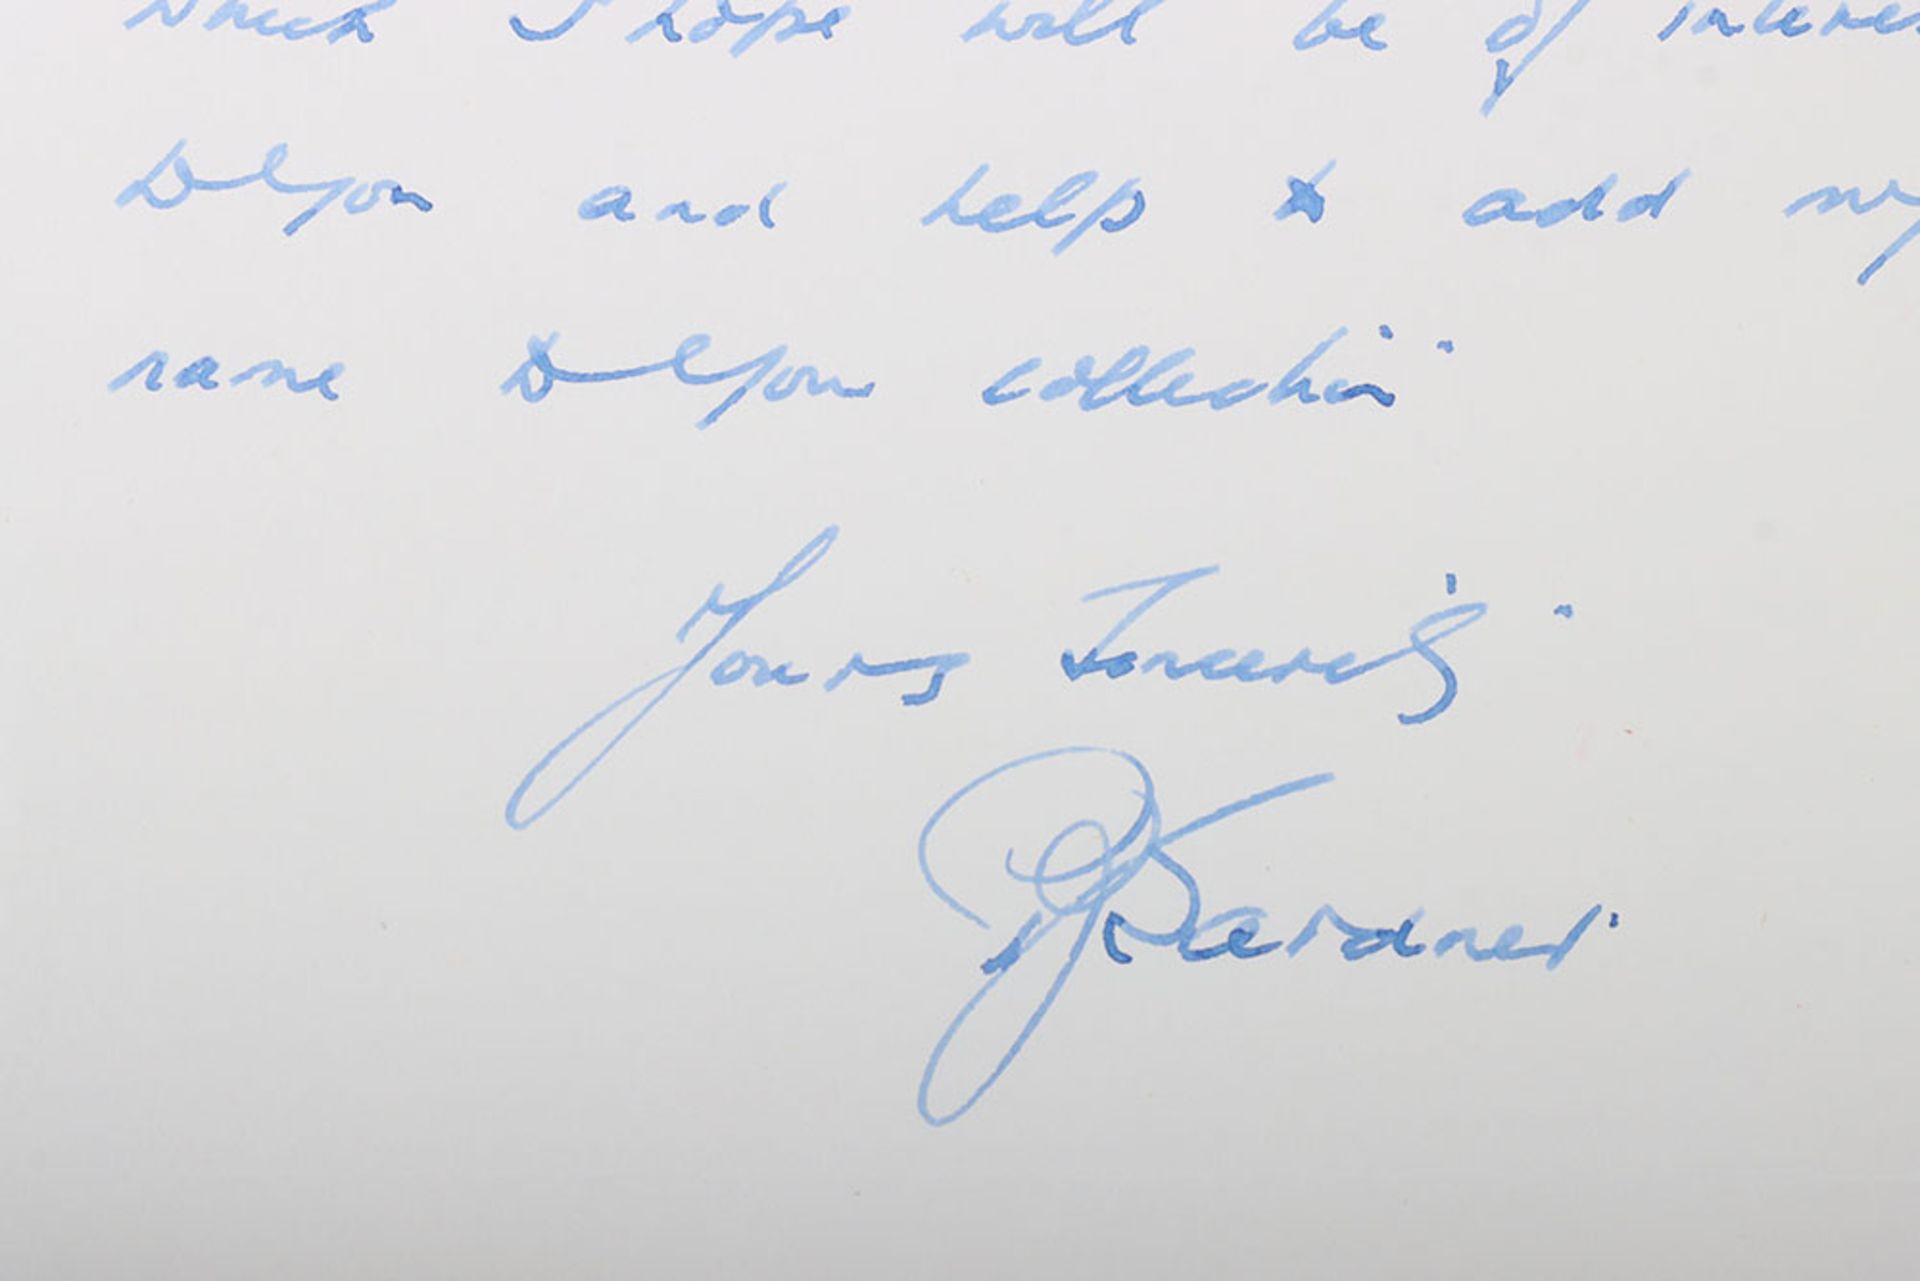 which I hope will be of interes
to you and help to add my
name to your collection.
Yours Sincerely.